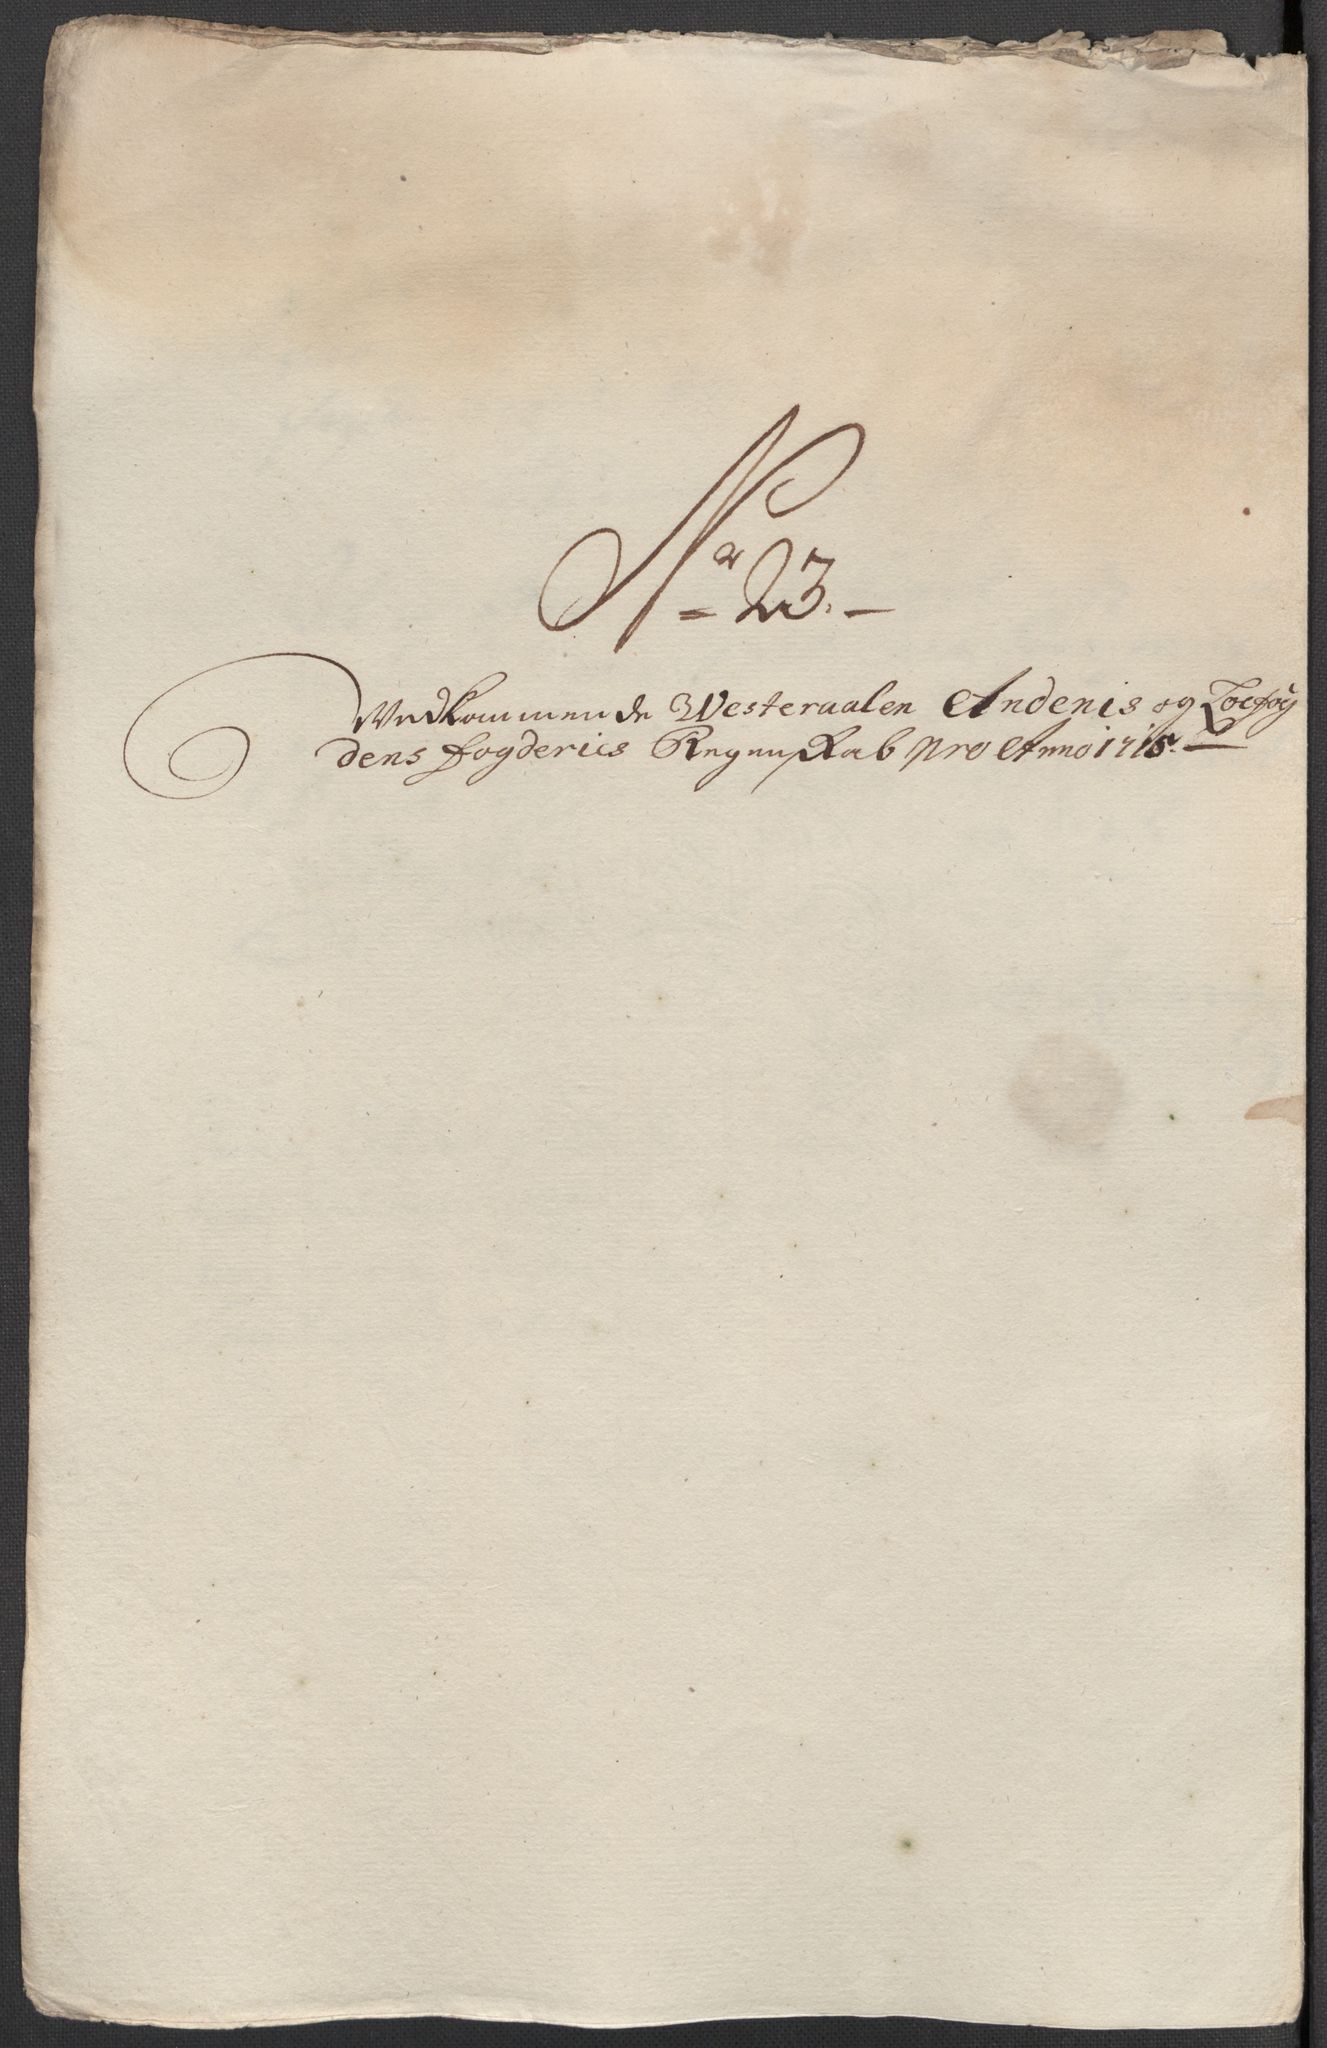 Nr 23.
Vedkommende Westeraalen Andenis og Lofod
dens fogderies Regnskab pro Anno 1715.